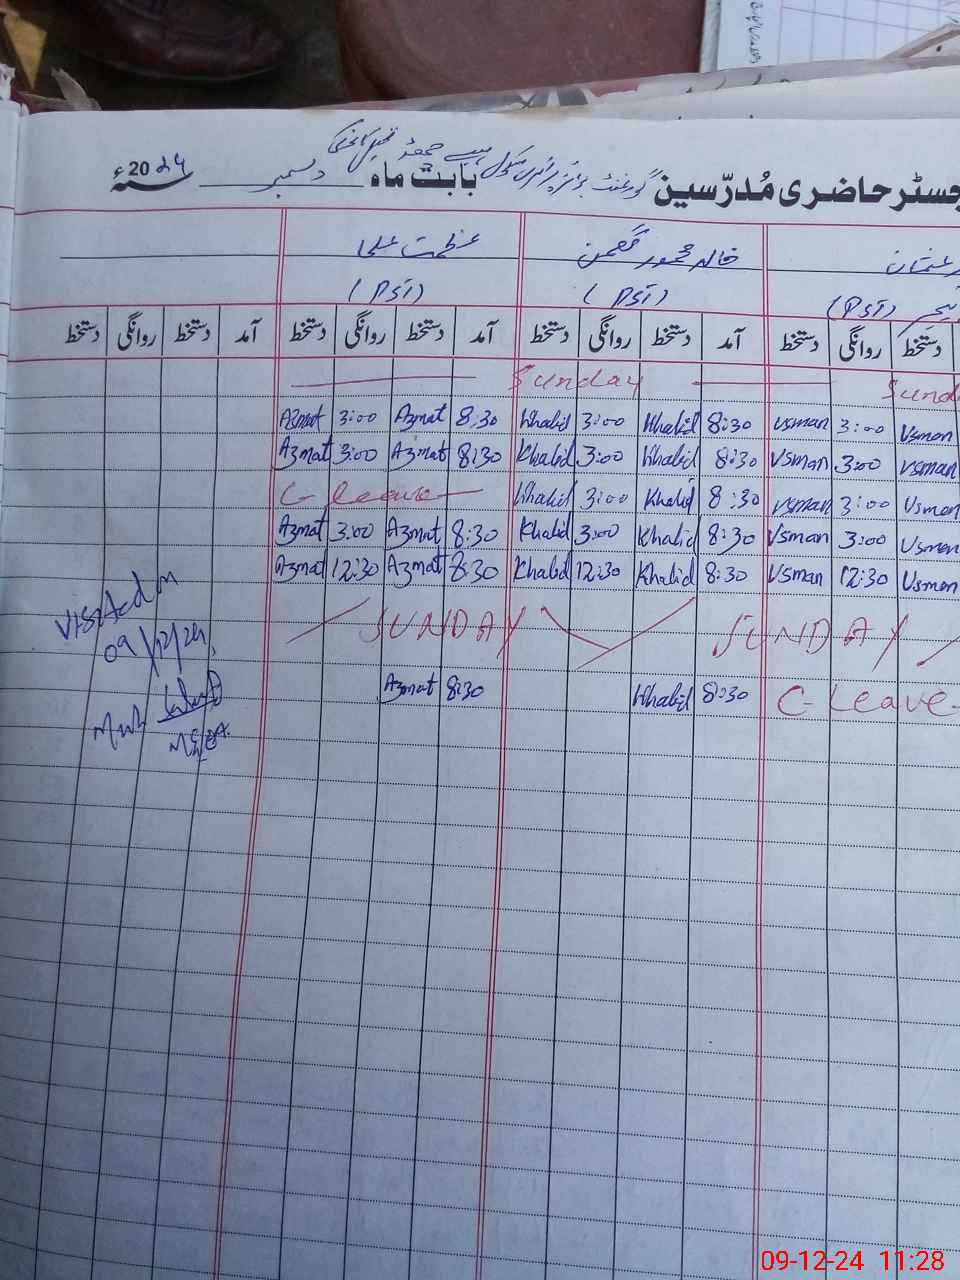 رجسٹر حاضری مُدرّسین گورنمنٹ بوائز پرائمری سکول بابت ماہ دسمبر سنہ 2024ء
عثمان خالد محمود عظمت علی
(PST) (PST) (PST)
دستخط روانگی دستخط آمد دستخط روانگی دستخط آمد دستخط روانگی دستخط آمد دستخط روانگی دستخط
Sunday Sund
Azmat 3:00 Azmat 8:30 Khalid 3:00 Khalid 8:30 Usman 3:00 Usman
Azmat 3:00 Azmat 8:30 Khalid 3:00 Khalid 8:30 Usman 3:00 Usman
C-leave Khalid 3:00 Khalid 8:30 Usman 3:00 Usman
Azmat 3:00 Azmat 8:30 Khalid 3:00 Khalid 8:30 Usman 3:00 Usman
Azmat 12:30 Azmat 8:30 Khalid 12:30 Khalid 8:30 Usman 12:30 Usman
SUNDAY SUNDAY
Azmat 8:30 Khalid 8:30 C-Leave
Visited on
09/12/24
09-12-24 11:28